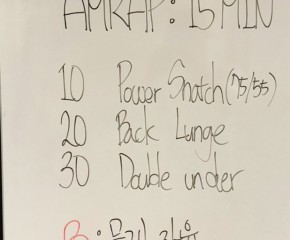 AMRAP : 15 MIN
10 Power Snatch (75/55)
20 Back Lunge
30 Double under
B : 무게 자유